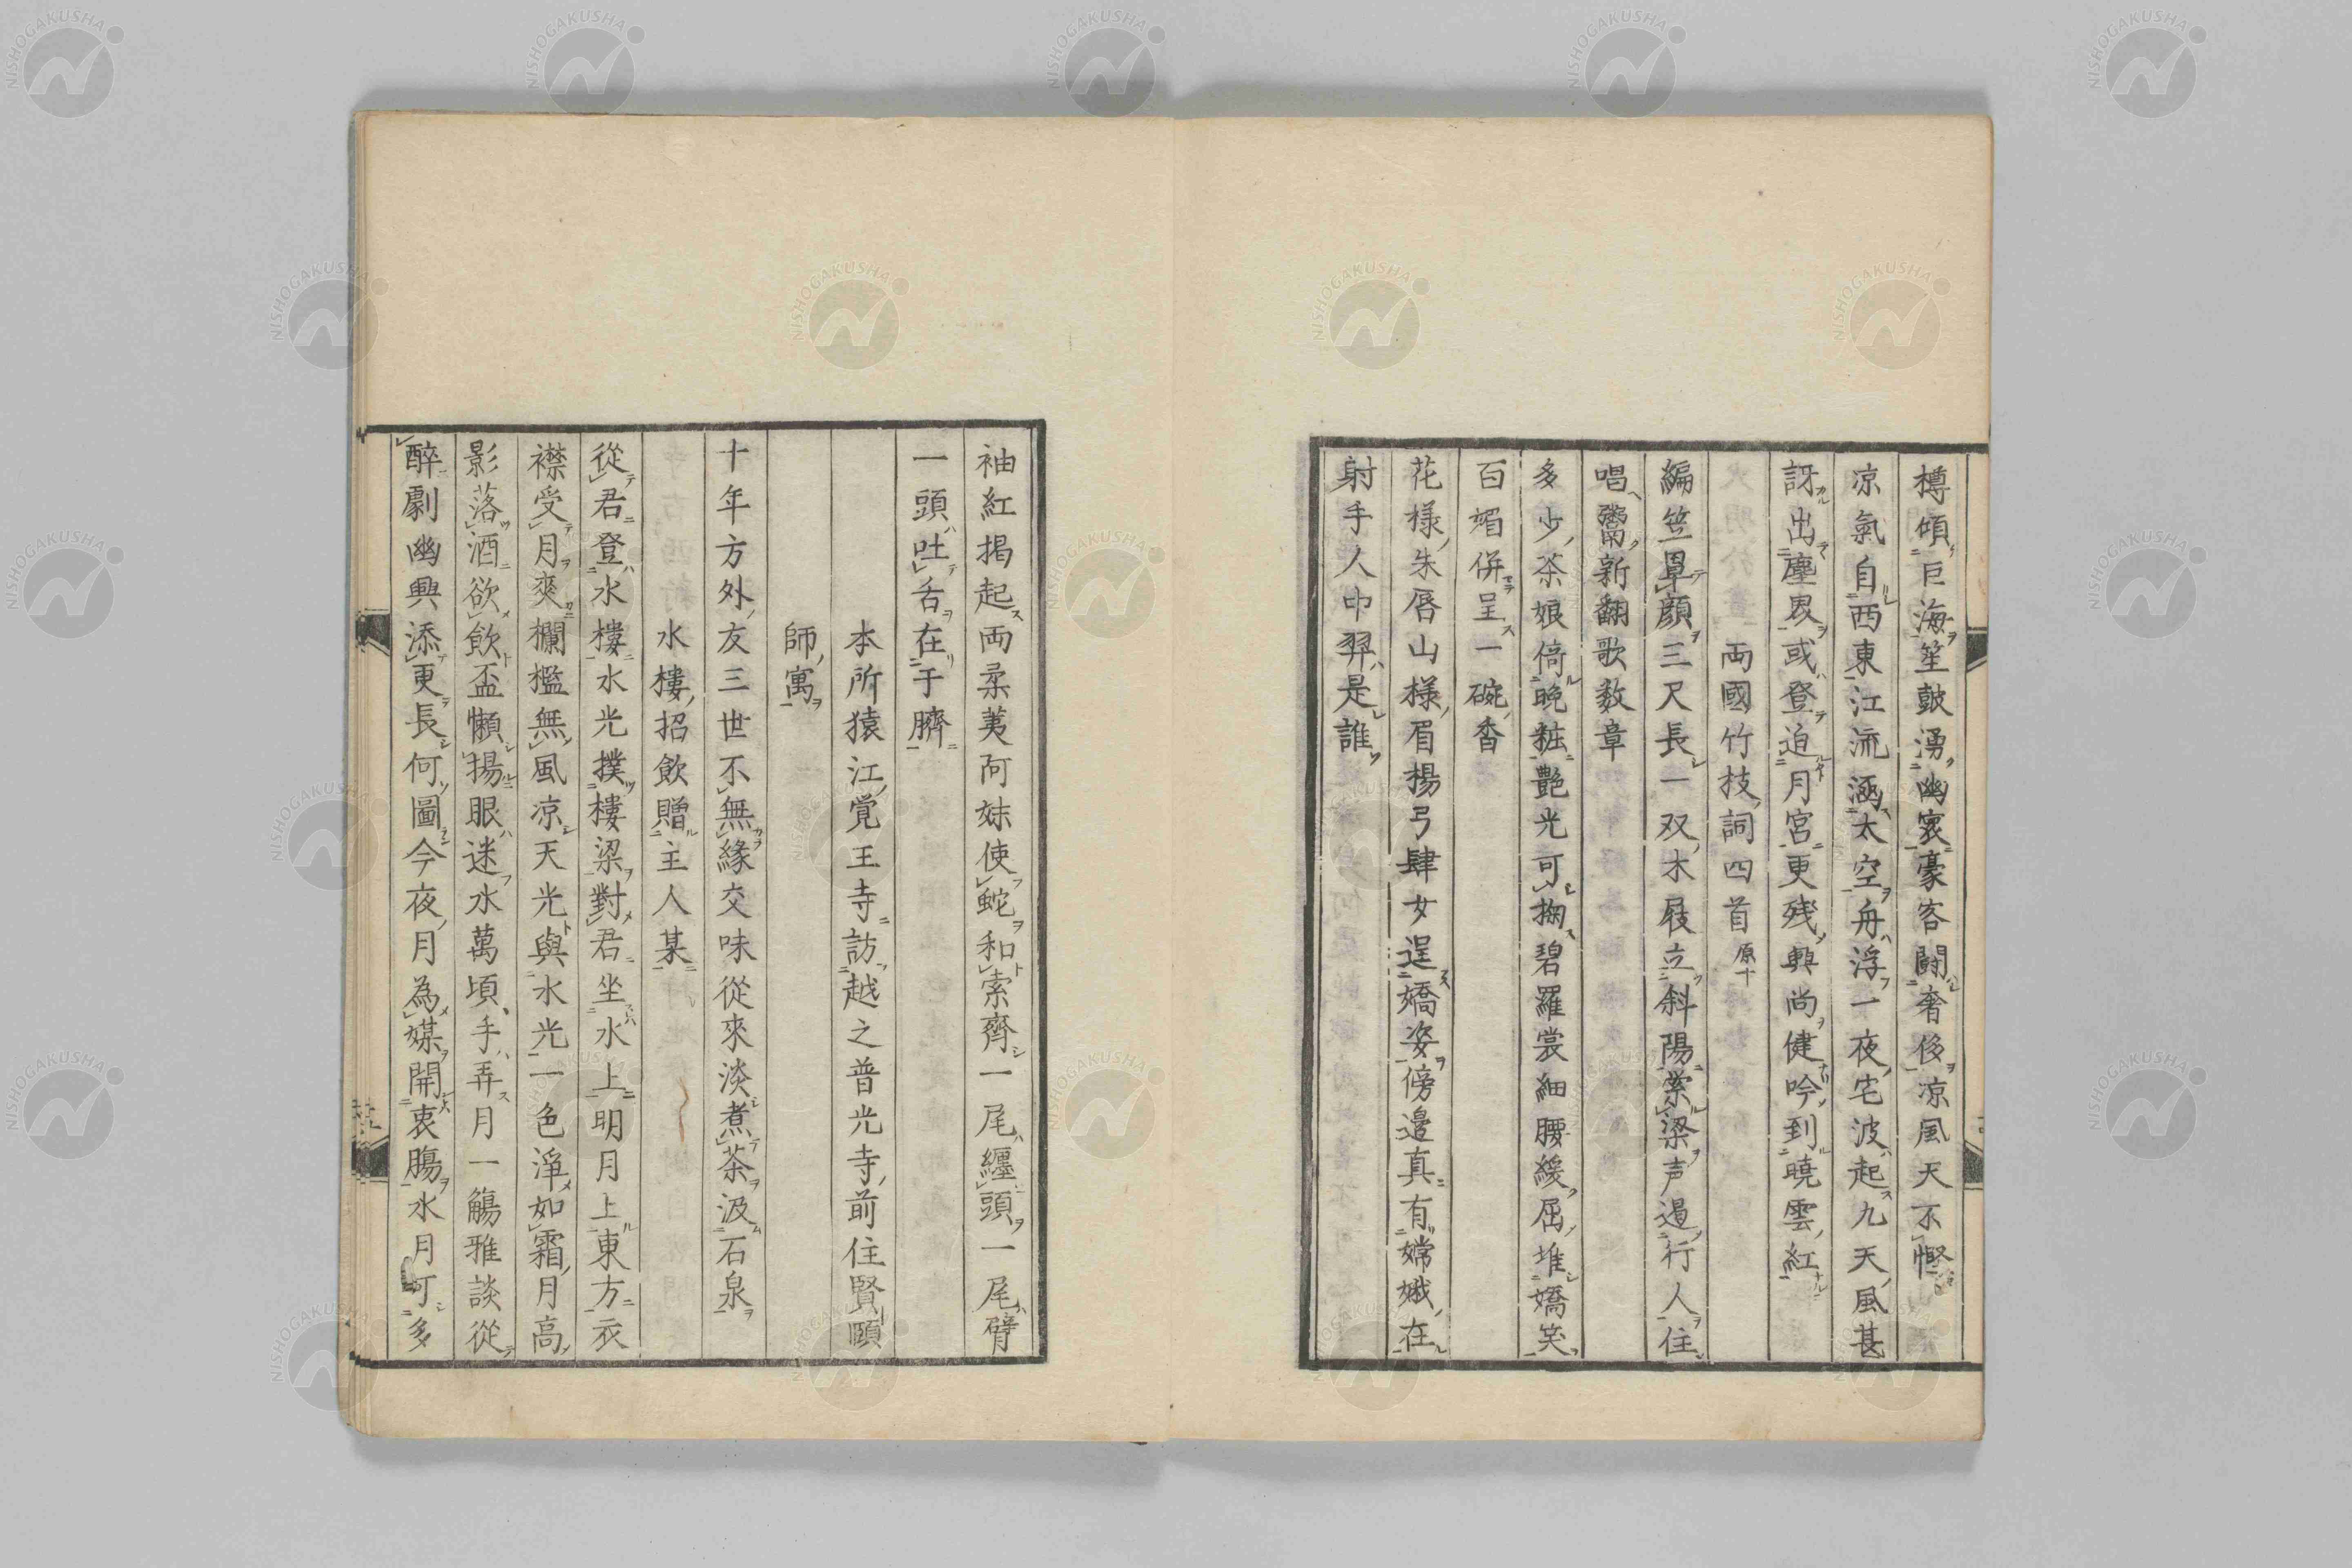 樽傾巨海笙皷湧幽寂豪客鬪奢侈凉風天不慳
凉氣自西東江流涵太空舟浮一夜宅波起九天風甚
訝出塵界或登迫月宮更残興尚健吟到曉雲紅
両國竹枝詞四首原十
編笠罩顔三尺長一双木屐立斜陽縈梁声遏行人住
唱鬻新翻歌数章
多少茶娘倚晩粧艶光可掬碧羅裳細腰緩屈堆嬌笑
百媚併呈一碗香
花樣朱唇山樣眉楊弓肆女逞嬌姿傍邉真有嫦娥在
射手人中羿是誰
袖紅掲起両柔荑阿妹使蛇和索齊一尾纏頭一尾臂
一頭吐舌在于臍
本所猿江覚王寺訪越之普光寺前住賢頤
師寓
十年方外友三世不無緣交味從來淡煮茶汲石泉
水樓招飲贈主人某
從君登水樓水光撲樓梁對君坐水上明月上東方衣
襟受月爽欄檻無風凉天光與水光一色淨如霜月高
影落酒欲飲盃懶揚眼迷水萬頃手弄月一觴雅談從
醉劇幽興添更長何圖今夜月為媒開衷膓水月可多
NISHOGAKUSHA